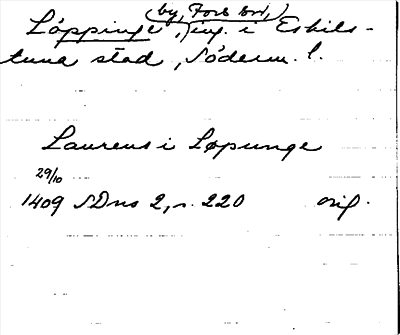 (by, Fors sn,)
Löppinge, ing. i Eskils-
tuna stad, Söderm. l.
Laurens i Løpunge
29/10
1409 SDns 2, s. 220 orig.